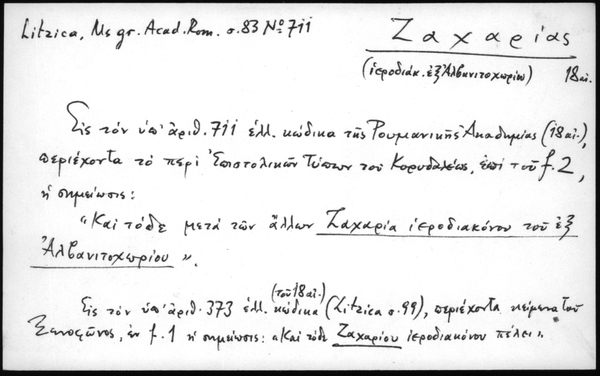 Litzica, Ms gr. Acad. Rom. σ. 83 Nº 711
Ζαχαρίας
(ἱεροδιάκ. ἐξ Ἀλβανιτοχωρίου) 18 αἰ.
Εἰς τὸν ὑπ' ἀριθ. 711 ἑλλ. κώδικα τῆς Ρουμανικῆς Ἀκαδημίας (18 αἰ.),
περιέχοντα τὸ περὶ Ἐπιστολικῶν Τύπων τοῦ Κορυδαλέως, ἐπὶ τοῦ f. 2,
ἡ σημείωσις:
"Καὶ τόδε μετὰ τῶν ἄλλων Ζαχαρία ἱεροδιακόνου τοῦ ἐξ
Ἀλβανιτοχωρίου".
Εἰς τὸν ὑπ' ἀριθ. 373 ἑλλ. κώδικα (τοῦ 18 αἰ.) (Litzica σ. 99), περιέχοντα κείμενα τοῦ
Ξενοφῶντος, ἐν f. 1 ἡ σημείωσις: «Καὶ τόδε Ζαχαρίου ἱεροδιακόνου πέλει».